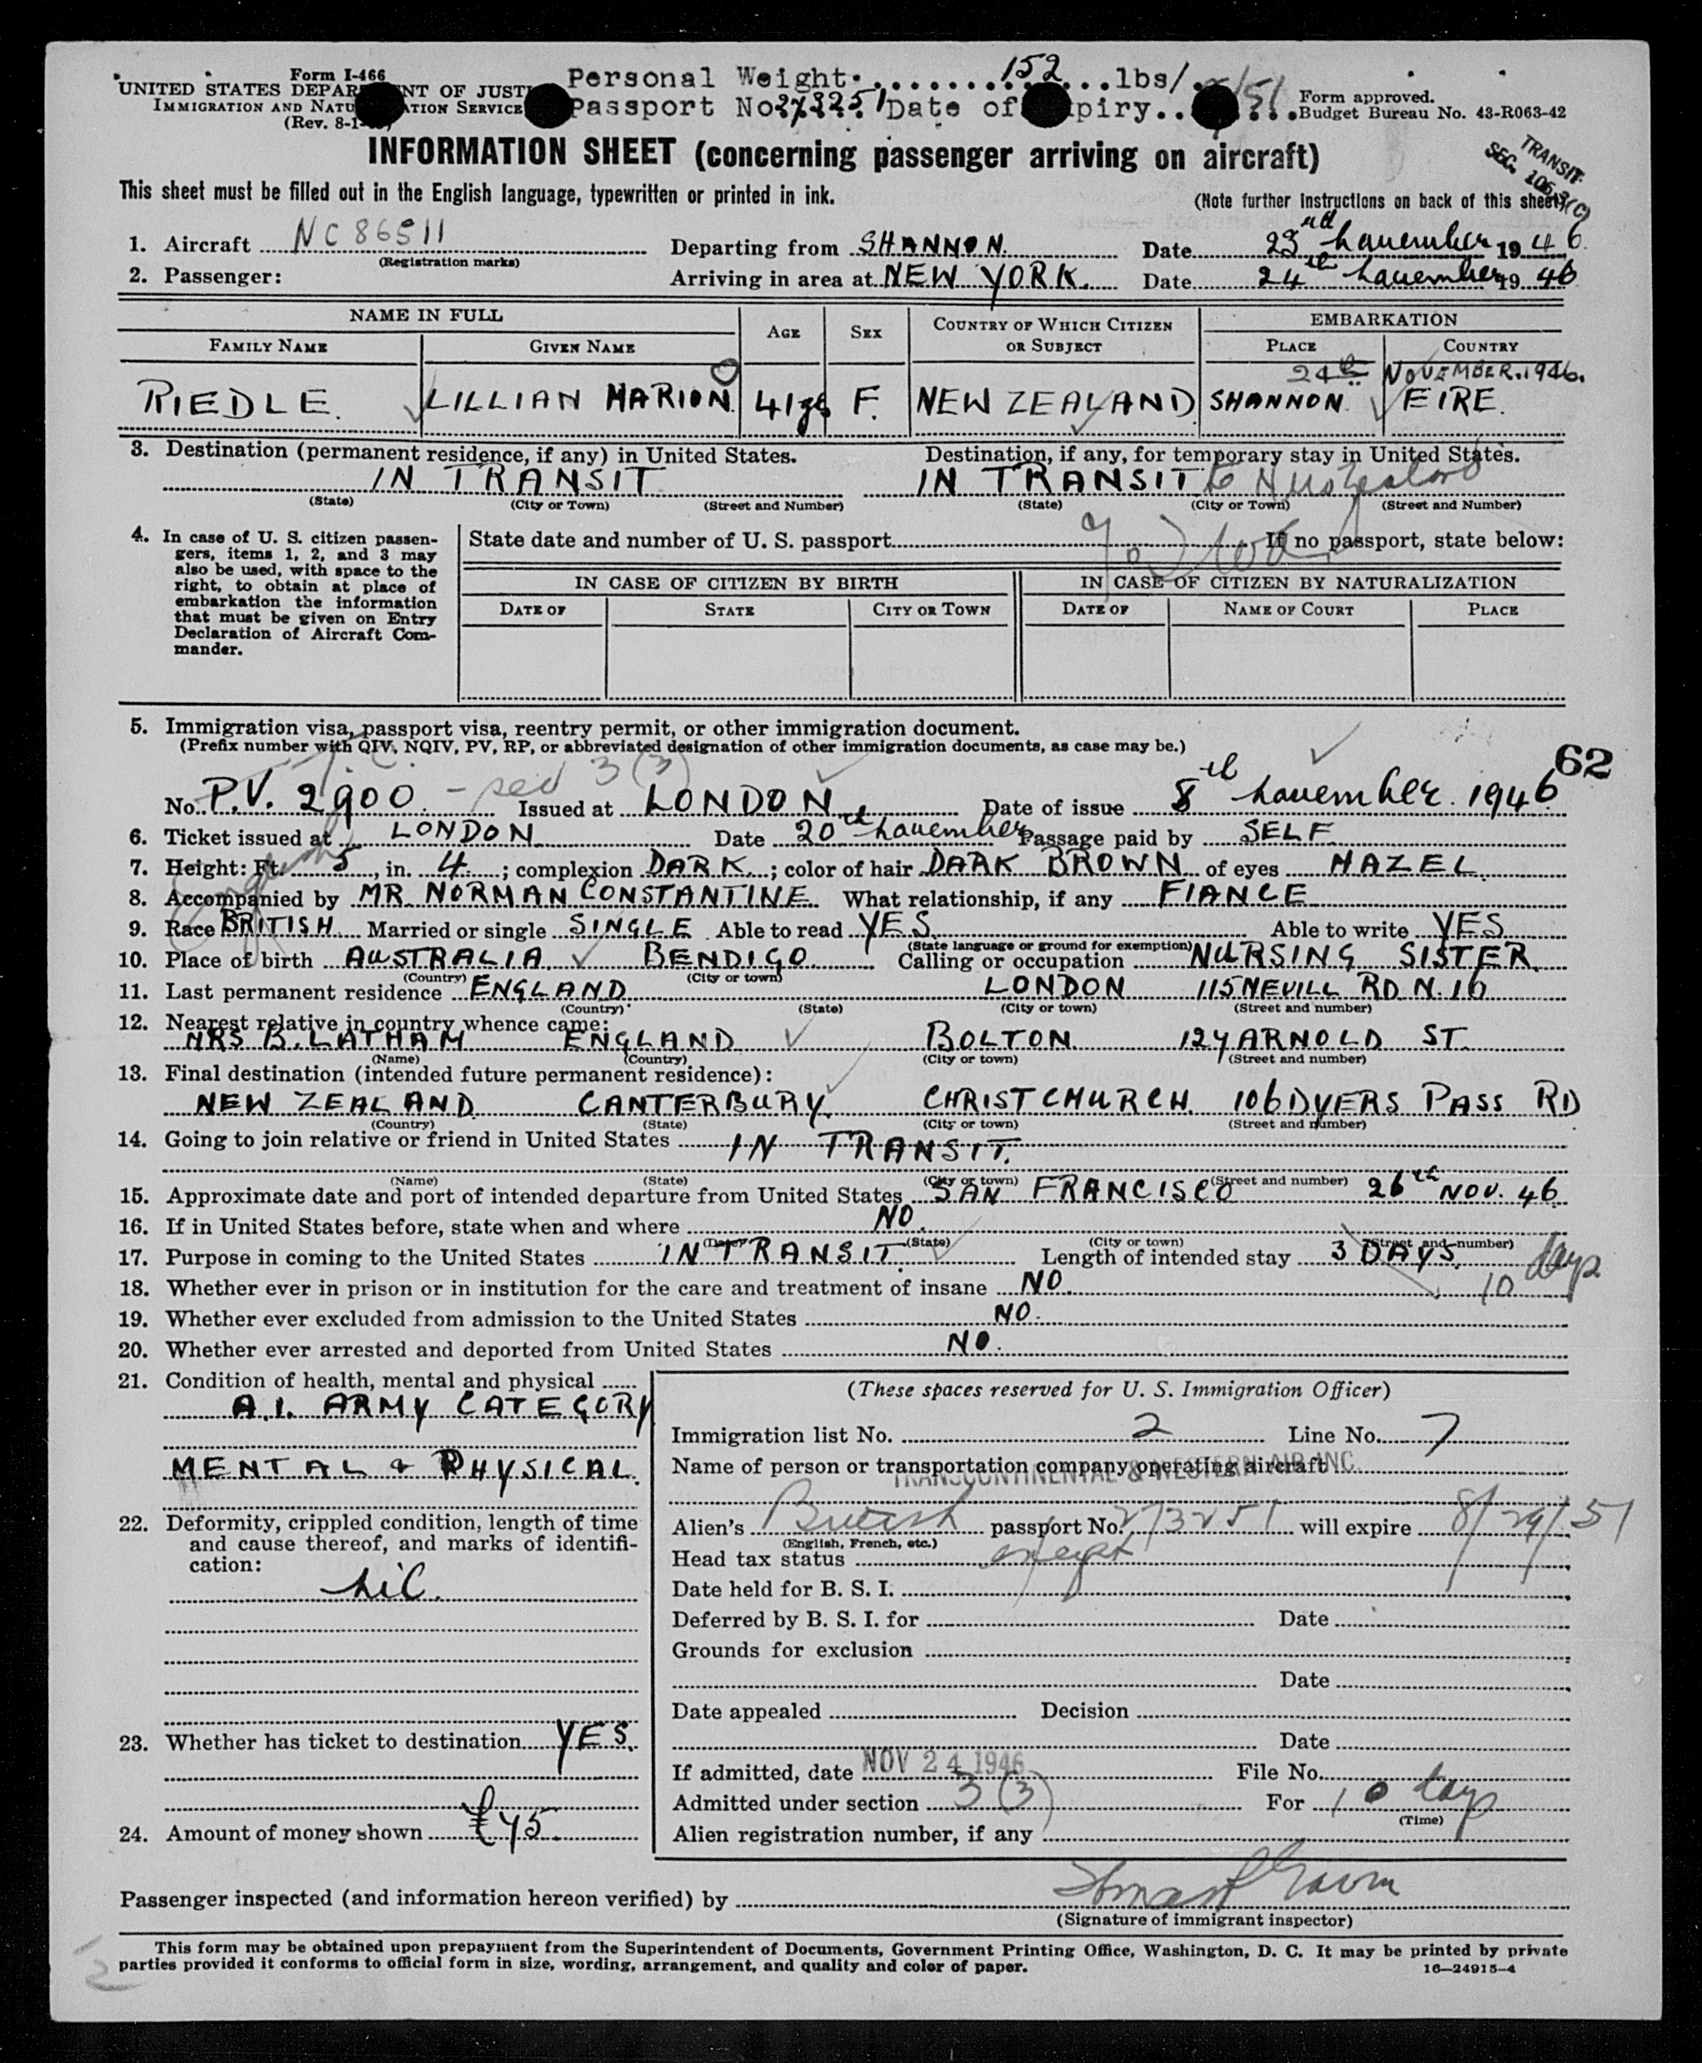 Form I-466
UNITED STATES DEPAR NT OF JUSTI
IMMIGRATION AND NATU ATION SERVICE
(Rev. 8-1-
Personal Weight. 152 lbs/.
Passport No. 273251 Date of piry 51
Form approved.
Budget Bureau No. 43-R063-42
INFORMATION SHEET (concerning passenger arriving on aircraft)
TRANSIT
SEC. 106.3(C)
This sheet must be filled out in the English language, typewritten or printed in ink. (Note further instructions on back of this sheet)
1. Aircraft NC 86511 Departing from SHANNON. Date 23rd November 1946.
(Registration marks)
2. Passenger: Arriving in area at NEW YORK. Date 24th November 1946
NAME IN FULL AGE SEX COUNTRY OF WHICH CITIZEN OR SUBJECT EMBARKATION
FAMILY NAME GIVEN NAME PLACE COUNTRY
24th NOVEMBER.1946.
RIEDLE. LILLIAN MARION 41 F. NEW ZEALAND SHANNON. EIRE.
3. Destination (permanent residence, if any) in United States. Destination, if any, for temporary stay in United States.
IN TRANSIT IN TRANSIT to
(State) (City or Town) (Street and Number) (State) (City or Town) (Street and Number)
4. In case of U. S. citizen passen-
gers, items 1, 2, and 3 may
also be used, with space to the
right, to obtain at place of
embarkation the information
that must be given on Entry
Declaration of Aircraft Com-
mander.
State date and number of U. S. passport If no passport, state below:
IN CASE OF CITIZEN BY BIRTH IN CASE OF CITIZEN BY NATURALIZATION
DATE OF STATE CITY OR TOWN DATE OF NAME OF COURT PLACE
5. Immigration visa, passport visa, reentry permit, or other immigration document.
(Prefix number with QIV, NQIV, PV, RP, or abbreviated designation of other immigration documents, as case may be.)
62
No. P.V. 2900 - sec 3(3) Issued at LONDON. Date of issue 8th November. 1946
6. Ticket issued at LONDON Date 20th November Passage paid by SELF
7. Height: Ft. 5, in. 4. ; complexion DARK. ; color of hair DARK BROWN of eyes HAZEL.
8. Accompanied by MR NORMAN CONSTANTINE What relationship, if any FIANCE
9. Race BRITISH. Married or single SINGLE Able to read YES. Able to write YES
(State language or ground for exemption)
10. Place of birth AUSTRALIA BENDIGO. Calling or occupation NURSING SISTER.
(Country) (City or town)
11. Last permanent residence ENGLAND. LONDON 115 NEVILL RD N.16
(Country) (State) (City or town) (Street and number)
12. Nearest relative in country whence came:
MRS B. LATHAM ENGLAND BOLTON 124 ARNOLD ST.
(Name) (Country) (City or town) (Street and number)
13. Final destination (intended future permanent residence):
NEW ZEALAND CANTERBURY. CHRISTCHURCH. 106 DYERS PASS RD
(Country) (State) (City or town) (Street and number)
14. Going to join relative or friend in United States IN TRANSIT.
(Name) (State) (City or town) (Street and number)
15. Approximate date and port of intended departure from United States SAN FRANCISCO 26th NOV. 46
16. If in United States before, state when and where NO.
(Date) (State) (City or town) (Street and number)
17. Purpose in coming to the United States IN TRANSIT. Length of intended stay 3 DAYS. 10 days
18. Whether ever in prison or in institution for the care and treatment of insane NO.
19. Whether ever excluded from admission to the United States NO.
20. Whether ever arrested and deported from United States NO.
21. Condition of health, mental and physical
A.1. ARMY CATEGORY
MENTAL & PHYSICAL.
22. Deformity, crippled condition, length of time
and cause thereof, and marks of identifi-
cation:
Nil.
23. Whether has ticket to destination YES.
24. Amount of money shown £45.
(These spaces reserved for U. S. Immigration Officer)
Immigration list No. 2 Line No. 7
Name of person or transportation company operating aircraft
TRANSCONTINENTAL & WESTERN AIR INC.
Alien's British passport No. 273251 will expire 8/29/51
(English, French, etc.)
Head tax status exempt
Date held for B. S. I.
Deferred by B. S. I. for Date
Grounds for exclusion
Date
Date appealed Decision
Date
If admitted, date NOV 24 1946 File No.
Admitted under section 3(3) For 10 days
(Time)
Alien registration number, if any
Passenger inspected (and information hereon verified) by
(Signature of immigrant inspector)
This form may be obtained upon prepayment from the Superintendent of Documents, Government Printing Office, Washington, D. C. It may be printed by private
parties provided it conforms to official form in size, wording, arrangement, and quality and color of paper.
16—24915-4